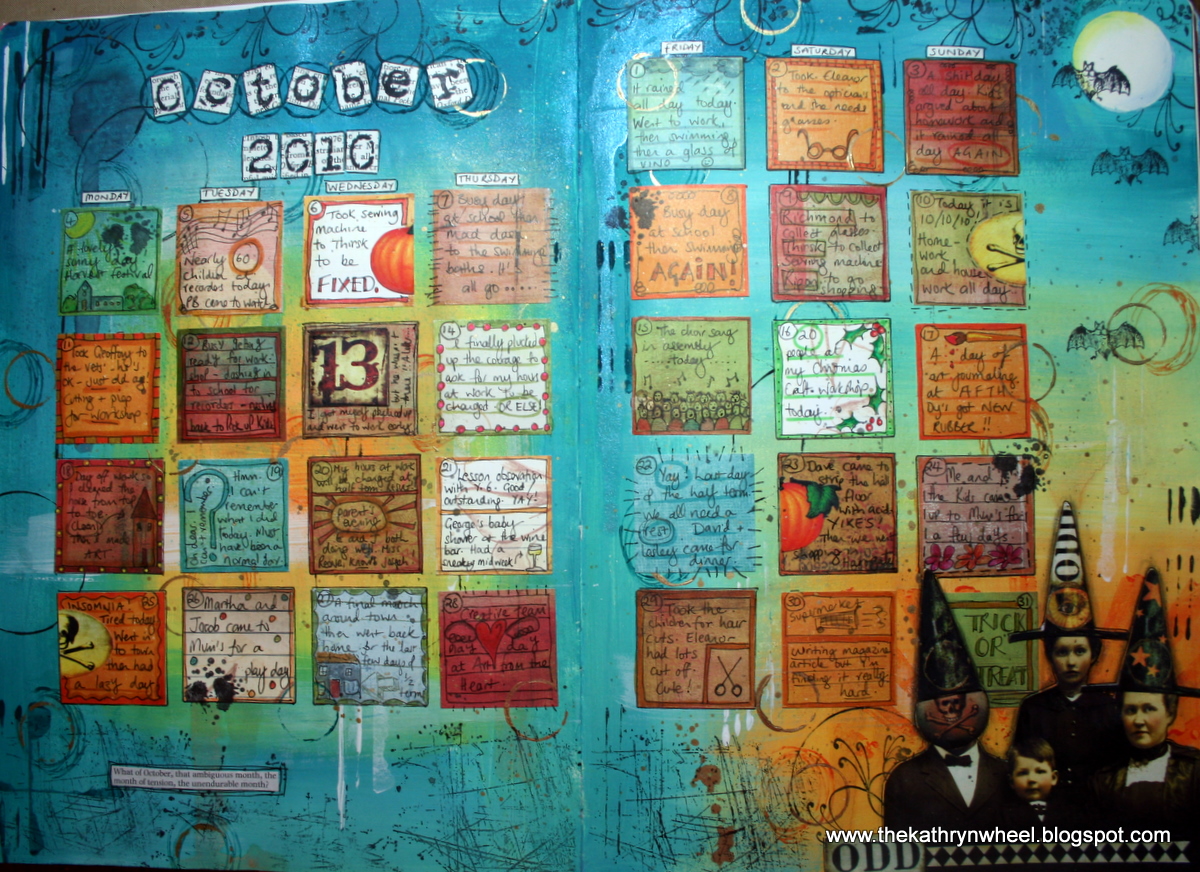 October
2010
FRIDAY
SATURDAY
SUNDAY
MONDAY
TUESDAY
WEDNESDAY
THURSDAY
1
It rained
all day today.
Went to work,
then swimming,
then a glass of
VINO
2
Took Eleanor
to the opticians
and she needs
glasses.
3
A shit day!
all day. Kids
argued about
homework and
it rained all
day AGAIN
4
A lovely
sunny day
Harvest festival
5
Nearly 60
children
recorders today.
PB came to watch
6
Took sewing
machine
to Thirsk
to be
FIXED.
7
Busy day
at school then
mad dash
to the swimming
baths.
all go .....
8
Busy day
at school
then swimming
AGAIN!
9
Richmond to
collect glasses
Thirsk to collect
sewing machine
Ripon to go
shopping
10
Today it is
10/10/10.
Home-
work
and house
work all day.
11
Took Geoffrey to
the vets - he's
OK - just old age
Cutting + prep
for workshop
12
Busy getting
ready for work-
school for
recorders
back to
13
I got myself
and went to work early.
14
I finally plucked
up the courage to
ask for my hours
at work to be
changed OR ELSE!
15
The choir sang
in assembly
today
16
20
people at
my Christmas
craft workshop
today.
17
A day of
art journaling
at
Dy's got NEW
RUBBER!!
18
Day of work
I cleaned the
house
to top
(clean)
Then I made
ART
19
Hmm.
I can't
remember
what I did
today. Must
have been a
normal day.
Oh dear. I
can't remember
20
My hours at work
will be changed at
half term
parents
evening
21
Lesson observation
with Y6. Good
outstanding. YAY!
George's baby
shower at the wine
bar. Had a
sneaky midweek!
22
Yay! last day
of the half term
we all need a
rest David +
Lesley came for
dinner
23
Dave came to
strip the hall
floor
with acid
YIKES!
Then we went
shopping to Harrogate
24
Me and
the kids came
up to Mum's for
a few days
25
INSOMNIA
Tired today
Went in
to town
then had
a lazy day
26
Martha and
Jacob came to
Mum's for a
play day
27
A final mooch
around town
then went back
home for the last
few days of
1/2
term
28
Creative team
day
at Art from the
Heart
29
Took the
children for hair
cuts. Eleanor
had lots
cut off.
Cute!
30
Supermarket
writing magazine
article but I'm
finding it really
hard.
31
TRICK
OR
TREAT
What of October, that ambiguous month, the
month of tension, the unendurable month?
www.thekathrynwheel.blogspot.com
ODD